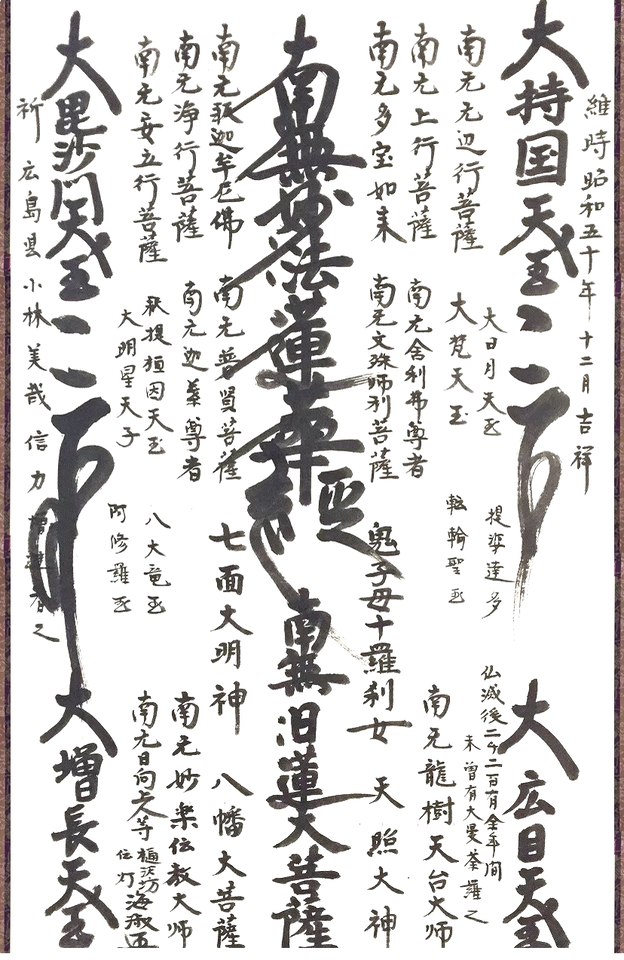 維時昭和五十年 十二月吉祥
大持国天王
大広目天王
南无无辺行菩薩
大日月天王
提婆達多
仏滅後二千二百有余年間
未曾有大曼荼羅之
南无上行菩薩
大梵天王
転輪聖王
南无龍樹天台大師
南无多宝如来
南无舎利弗尊者
南无文殊師利菩薩
鬼子母十羅刹女
天照大神
南無妙法蓮華経
南無日蓮大菩薩
南无釈迦牟尼佛
南无普賢菩薩
七面大明神
八幡大菩薩
南无浄行菩薩
南无迦葉尊者
南无妙楽伝教大師
南无安立行菩薩
釈提桓因天王
大明星天子
八大竜王
阿修羅王
南无日向上人等
大毘沙門天王
大増長天王
祈 広島県 小林美哉 信力増進者之